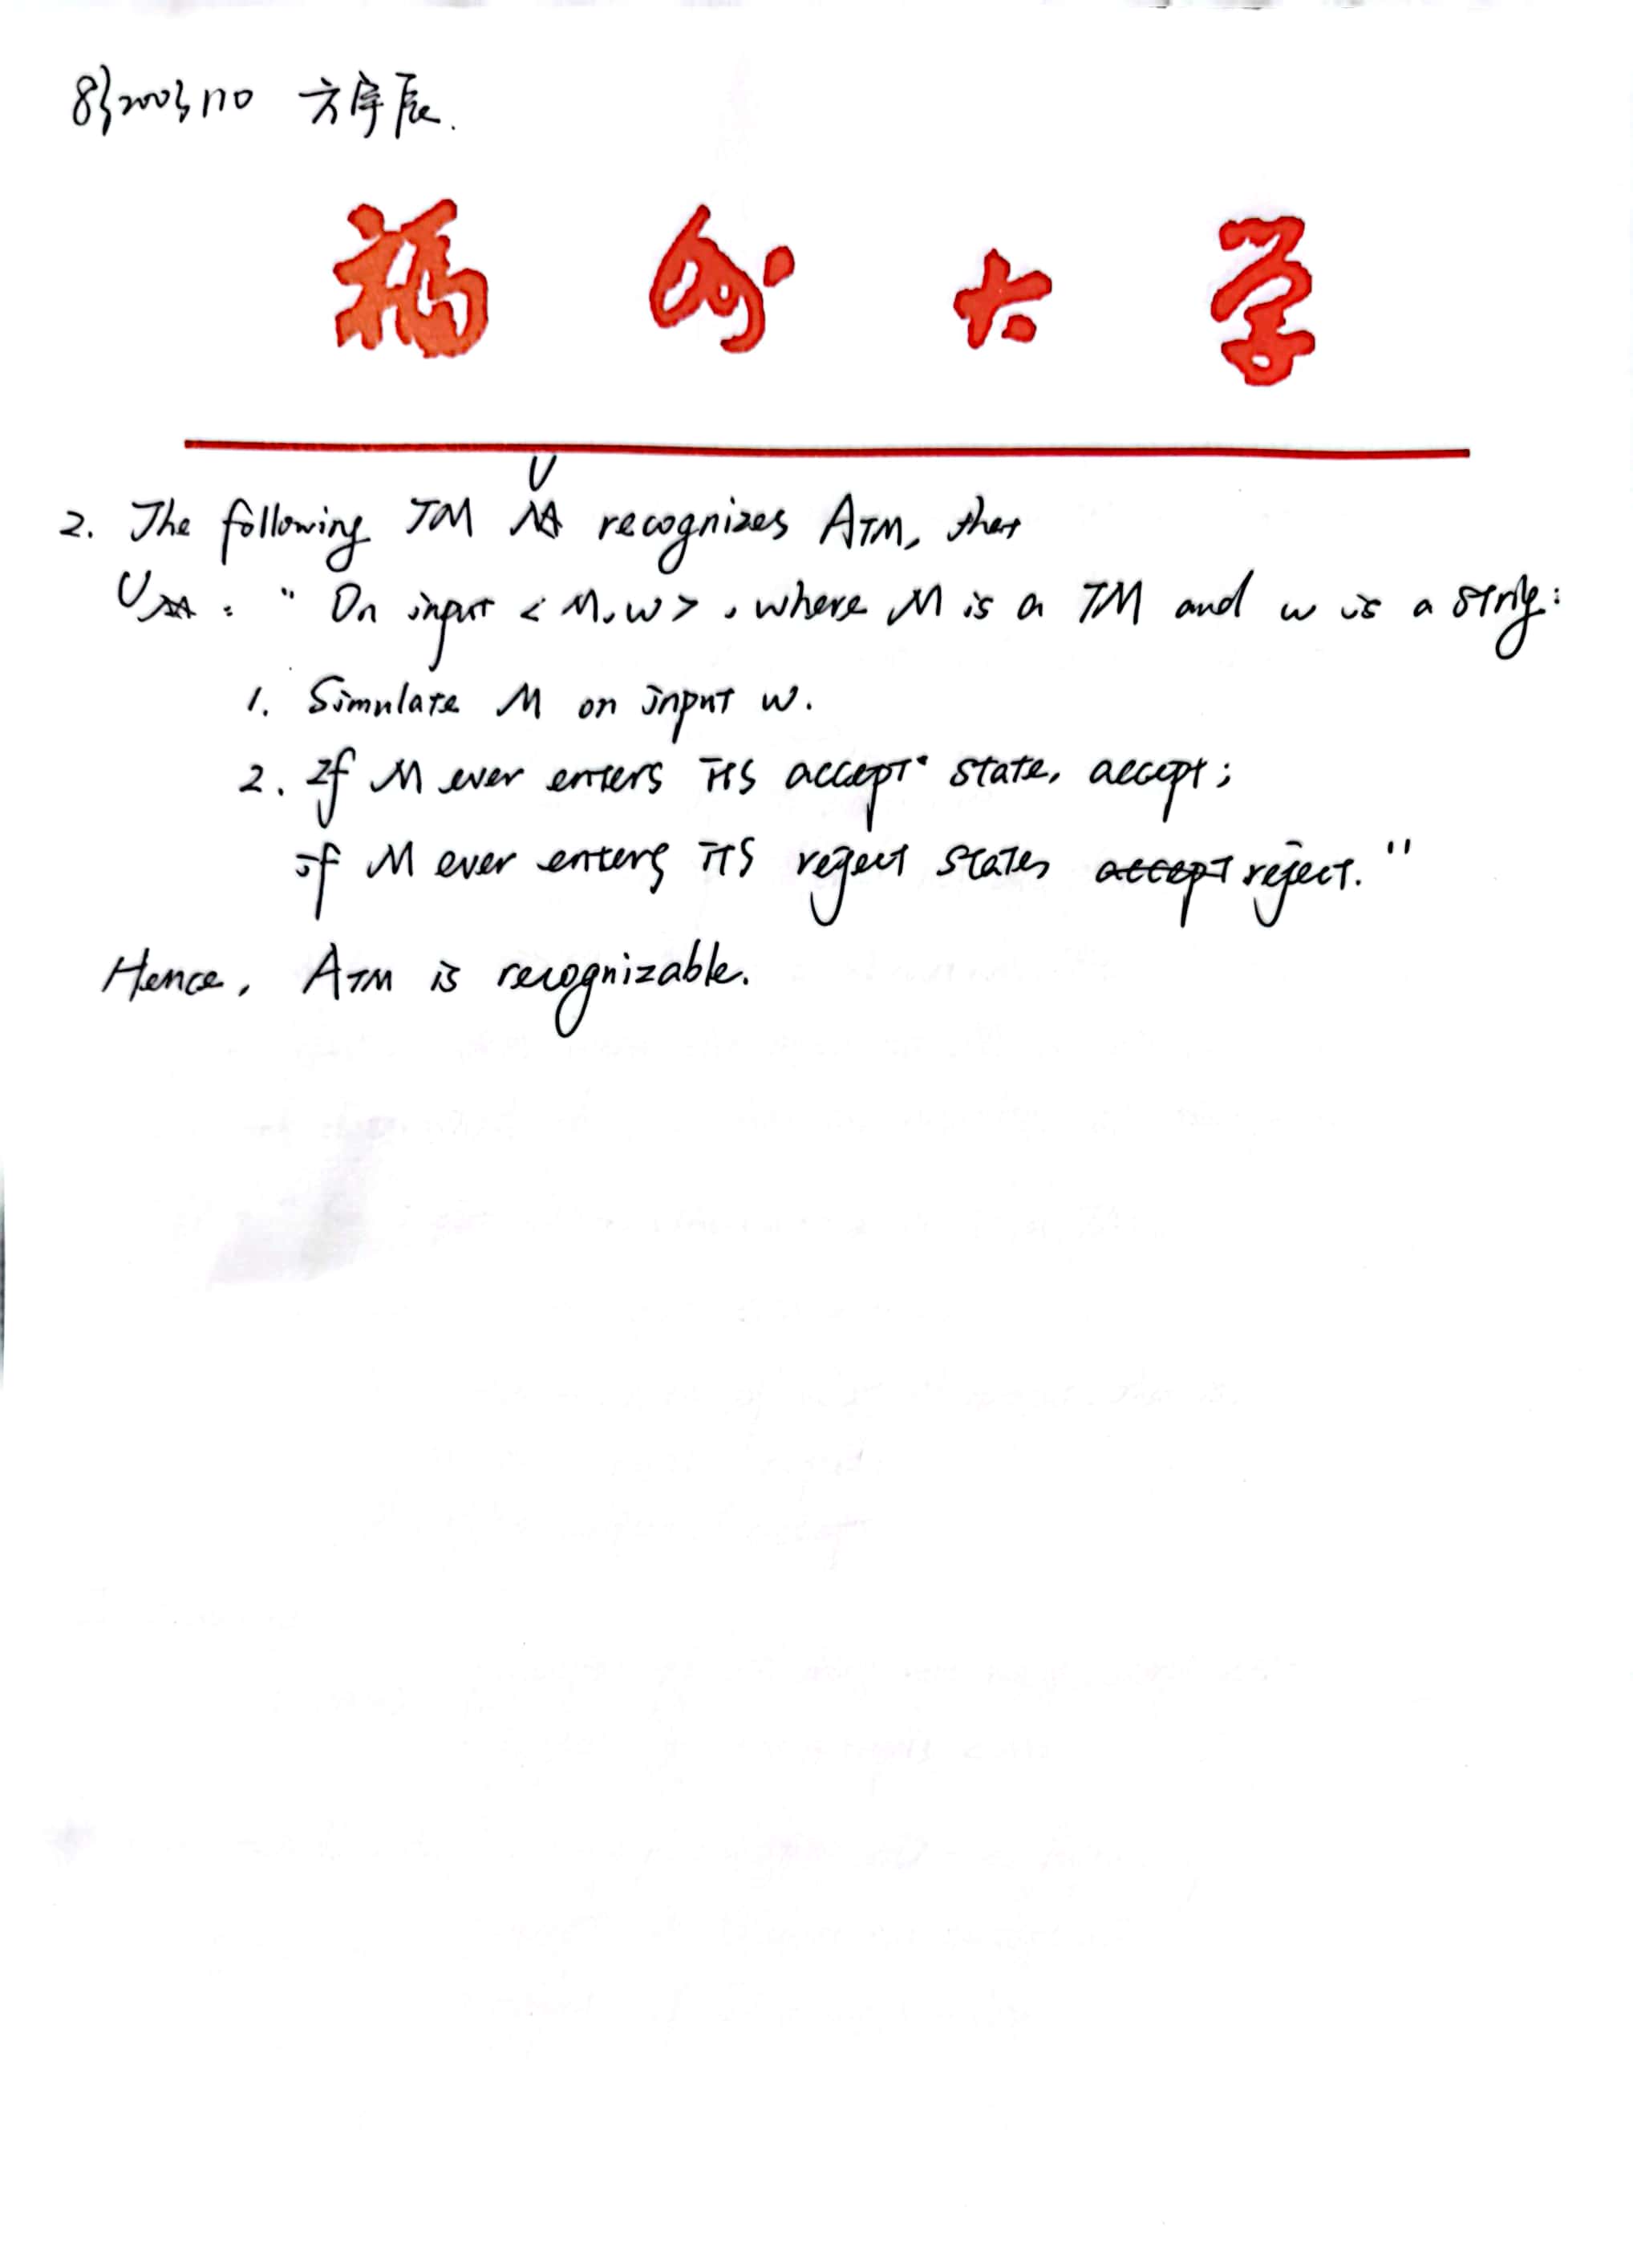 832003110 方宇辰.
福州大学
U
2. The following TM recognizes ATM, that
U : " On input < M, w > , where M is a TM and w is a string:
1. Simulate M on input w.
2. If M ever enters its accept state, accept;
if M ever enters its reject state, accept reject."
Hence, ATM is recognizable.